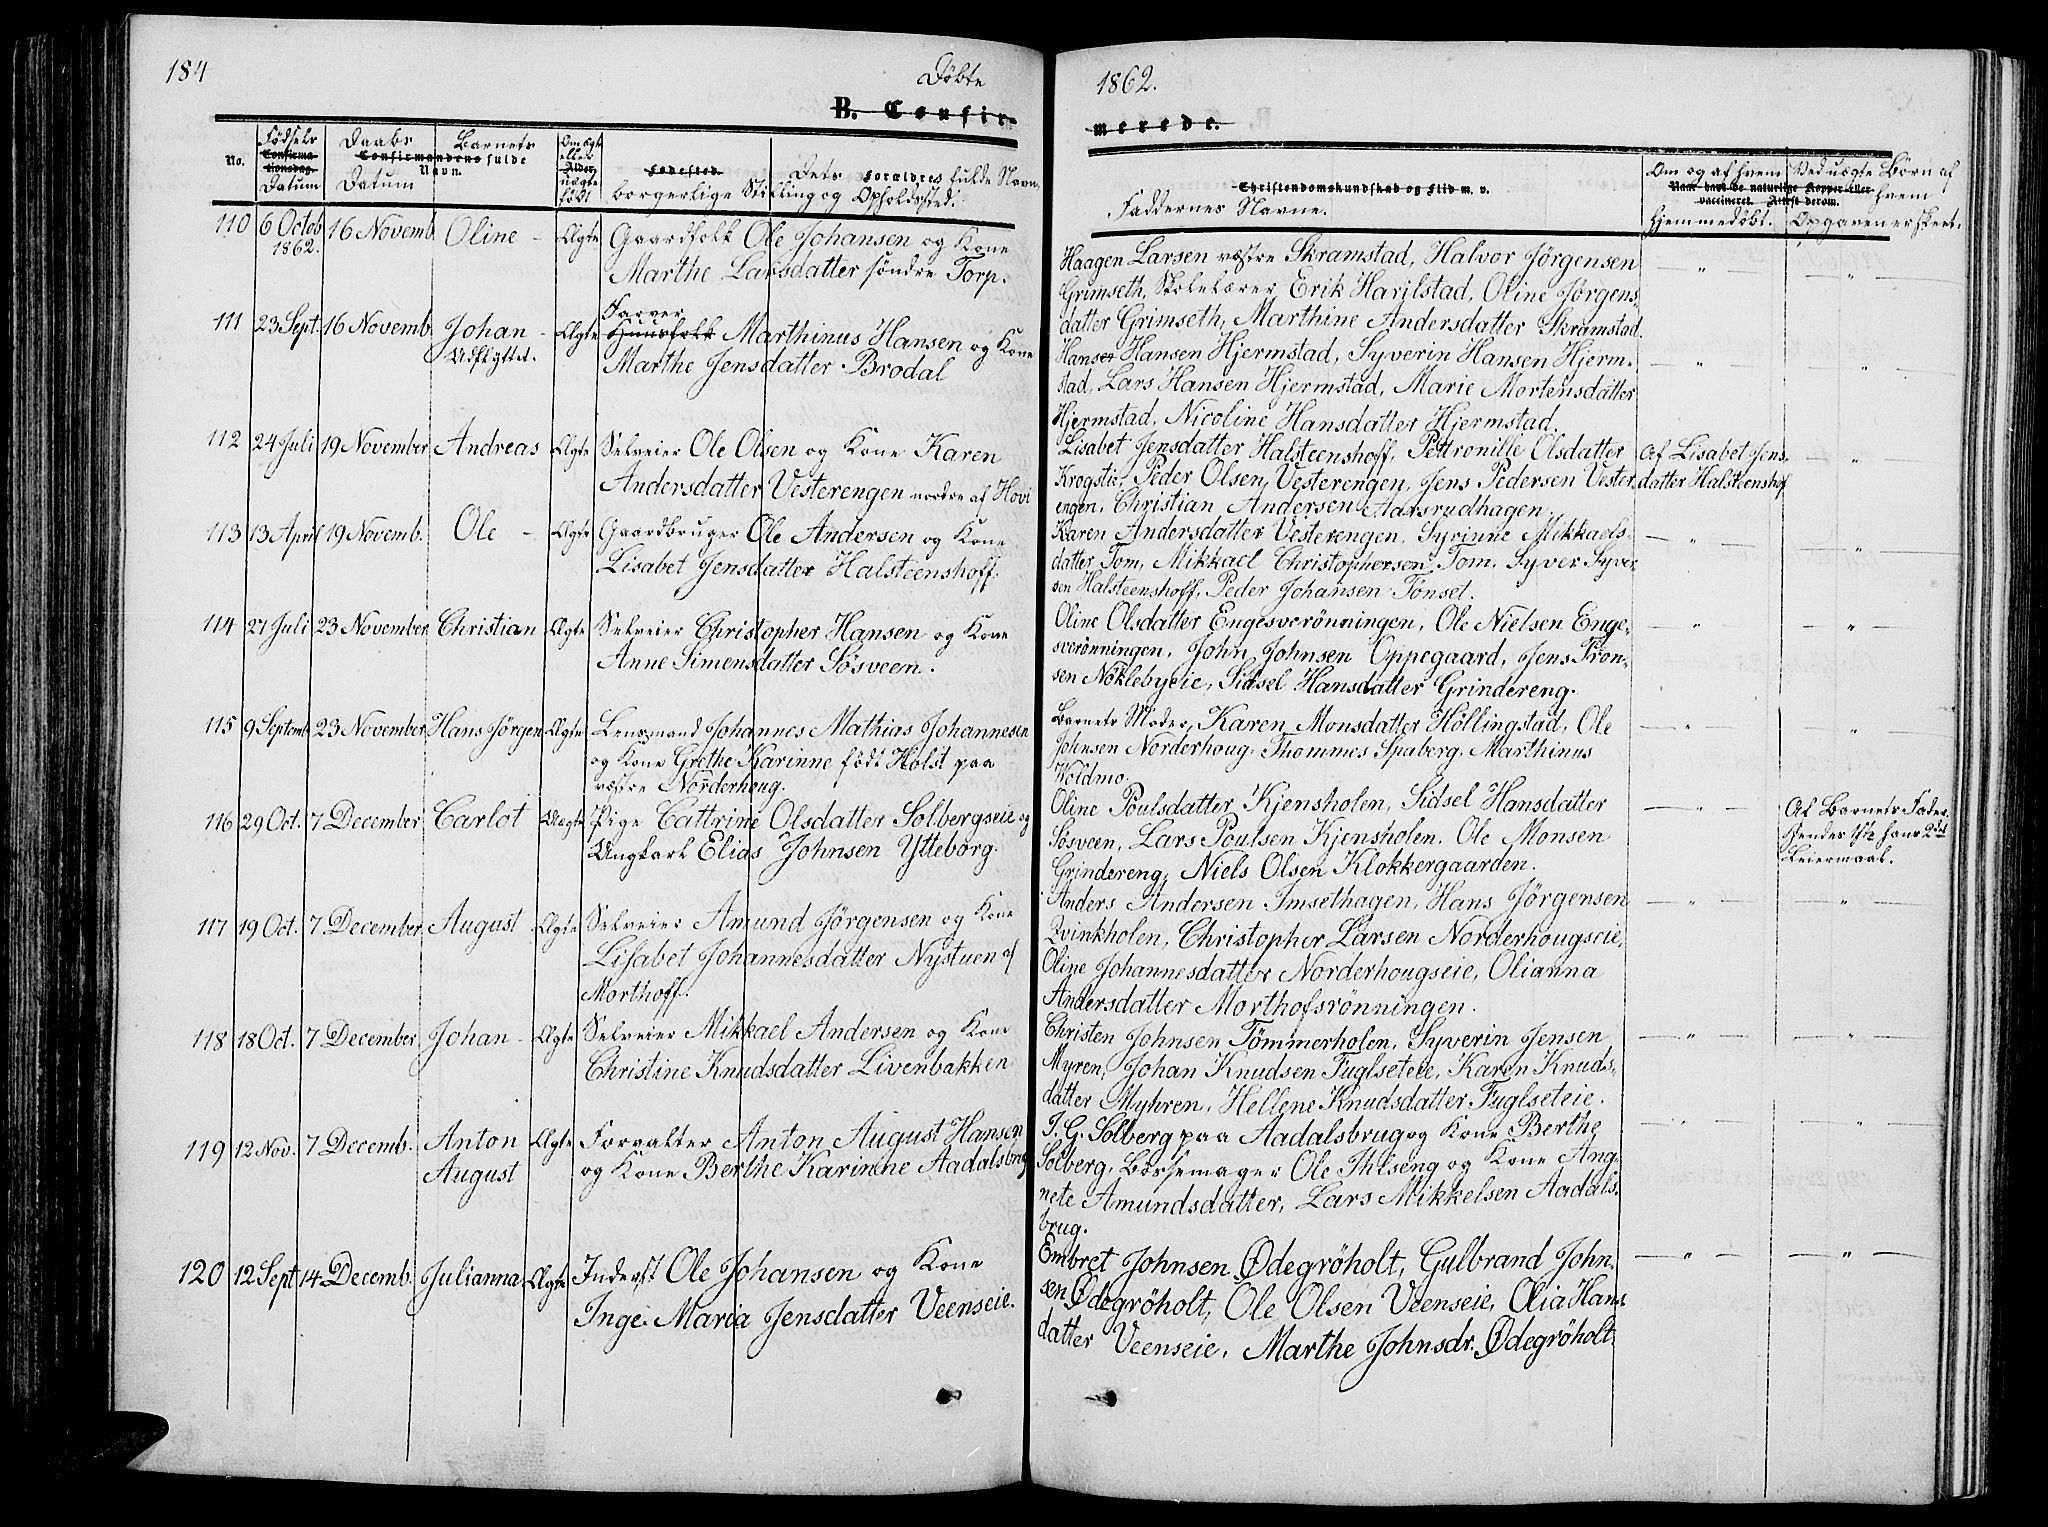 184
Døbte
1862.
B. Confir-
merede.
No.
Fødsels
Confirma-
tionsdag.
Datum
Daabs
Confirmandens fulde
Datum
Barnets
Navn.
Om ægte
eller
Alder.
uægte
født
Fødested
Dets Forældres fulde Navn,
borgerlige Stilling og Opholdssted.
Christendomskundskab og Flid m. v.
Faddernes Navne.
Om og af hvem
Naar havt de naturlige Kopper eller
vaccineret. Attest derom.
hjemmedøbt.
Ved uægte Børn af
hvem
Opgaven er skeet.
110 6 Octob 16 Novemb. Oline - Ægte Gaardfolk Ole Johansen og Kone
1862.
Marthe Larsdatter søndre Torp.
Haagen Larsen vestre Skramstad, Halvor Jørgensen
Grimseth, Skolelærer Erik Harilstad, Oline Jørgens-
datter Grimseth, Marthine Andersdatter Skramstad.
111 23 Sept. 16 Novemb. Johan - Ægte Huusfolk Marthinus Hansen og Kone
Farver
Udflyttet.
Marthe Jensdatter Brodal
Hanser Hansen Hjermstad, Syverin Hansen Hjerm-
stad, Lars Hansen Hjermstad, Marie Mortensdatter
Hjermstad, Nicoline Hansdatter Hjermstad.
112 24 Juli 19 November Andreas Ægte Selveier Ole Olsen og Kone Karen
Andersdatter Vesterengen nordre af Hovi
Lisabet Jensdatter Halsteenshoff, Pettronille Olsdatter
Krogstie, Peder Olsen Vesterengen, Jens Pedersen Vester-
engen, Christian Andersen Aarsrudhagen.
Af Lisabet Jens-
datter Halsteenshof
113 13 April 19 Novemb. Ole - Ægte Gaardbruger Ole Andersen og Kone
Lisabet Jensdatter Halsteenshoff.
Karen Andersdatter Vesterengen, Syrinne Mikkaels-
datter Tom, Mikkael Christophersen Tom, Syver Syver-
sen Halsteenshoff, Peder Johansen Tønset.
114 27 Juli 23 November Christian Ægte Selveier Christopher Hansen og Kone
Anne Simensdatter Søsveen.
Oline Olsdatter Engesverønningen, Ole Nielsen Enge-
sverønningen, John Johnsen Oppegaard, Jens Tron-
sen Nøklebyeie, Sidsel Hansdatter Grindereng.
115 9 Septemb 23 November Hans Jørgen Ægte Lensmand Johannes Mathias Johannesen
og Kone Grethe Karinne født Holst paa
vestre Norderhoug.
Barnets Moder, Karen Monsdatter Høllingstad, Ole
Johnsen Norderhoug, Thommes Spaberg, Marthinus
Woldmo.
116 29 Oct. 7 December Carlot Uægte Pige Cattrine Olsdatter Solbergseie og
Ungkarl Elias Johnsen Ytteborg.
Oline Poulsdatter Kjensholen, Sidsel Hansdatter
Søsveen, Lars Poulsen Kjensholen, Ole Monsen
Grindereng, Niels Olsen Klokkergaarden.
Af Barnets Fader.
Hendes 1ste hans 2det
Leiermaal.
117 19 Oct. 7 December. August Ægte Selveier Amund Jørgensen og Kone
Lisabet Johannesdatter Nystuen af
Morthoff.
Anders Andersen Imsethagen, Hans Jørgensen
Qvinkholen, Christopher Larsen Norderhougseie,
Oline Johannesdatter Norderhougseie, Olianna
Andersdatter Morthofsrønningen.
118 18 Oct. 7 December Johan - Ægte Selveier Mikkael Andersen og Kone
Christine Knudsdatter Livenbakken
Christen Johnsen Tømmerholen, Syverin Jensen
Myren, Johan Knudsen Fuglseteie, Karen Knuds-
datter Myhren, Hellene Knudsdatter Fuglseteie.
119 12 Nov. 7 Decemb. Anton Ægte Forvalter Anton August Hansen
August
og Kone Berthe Karinne Aadalsbrug
I. G. Solberg paa Aadalsbrug og Kone Berthe
Solberg, Bøssemager Ole Ihlseng og Kone Ang-
nete Amundsdatter, Lars Mikkelsen Aadals-
brug.
120 12 Sept 14 Decemb. Julianna Ægte Inderst Ole Johansen og Kone
Inge Maria Jensdatter Veenseie.
Embret Johnsen Ødegrøholt, Gulbrand John-
sen Ødegrøholt, Ole Olsen Veenseie, Olia Hans-
datter Veenseie, Marthe Johnsdr. Ødegrøholt.